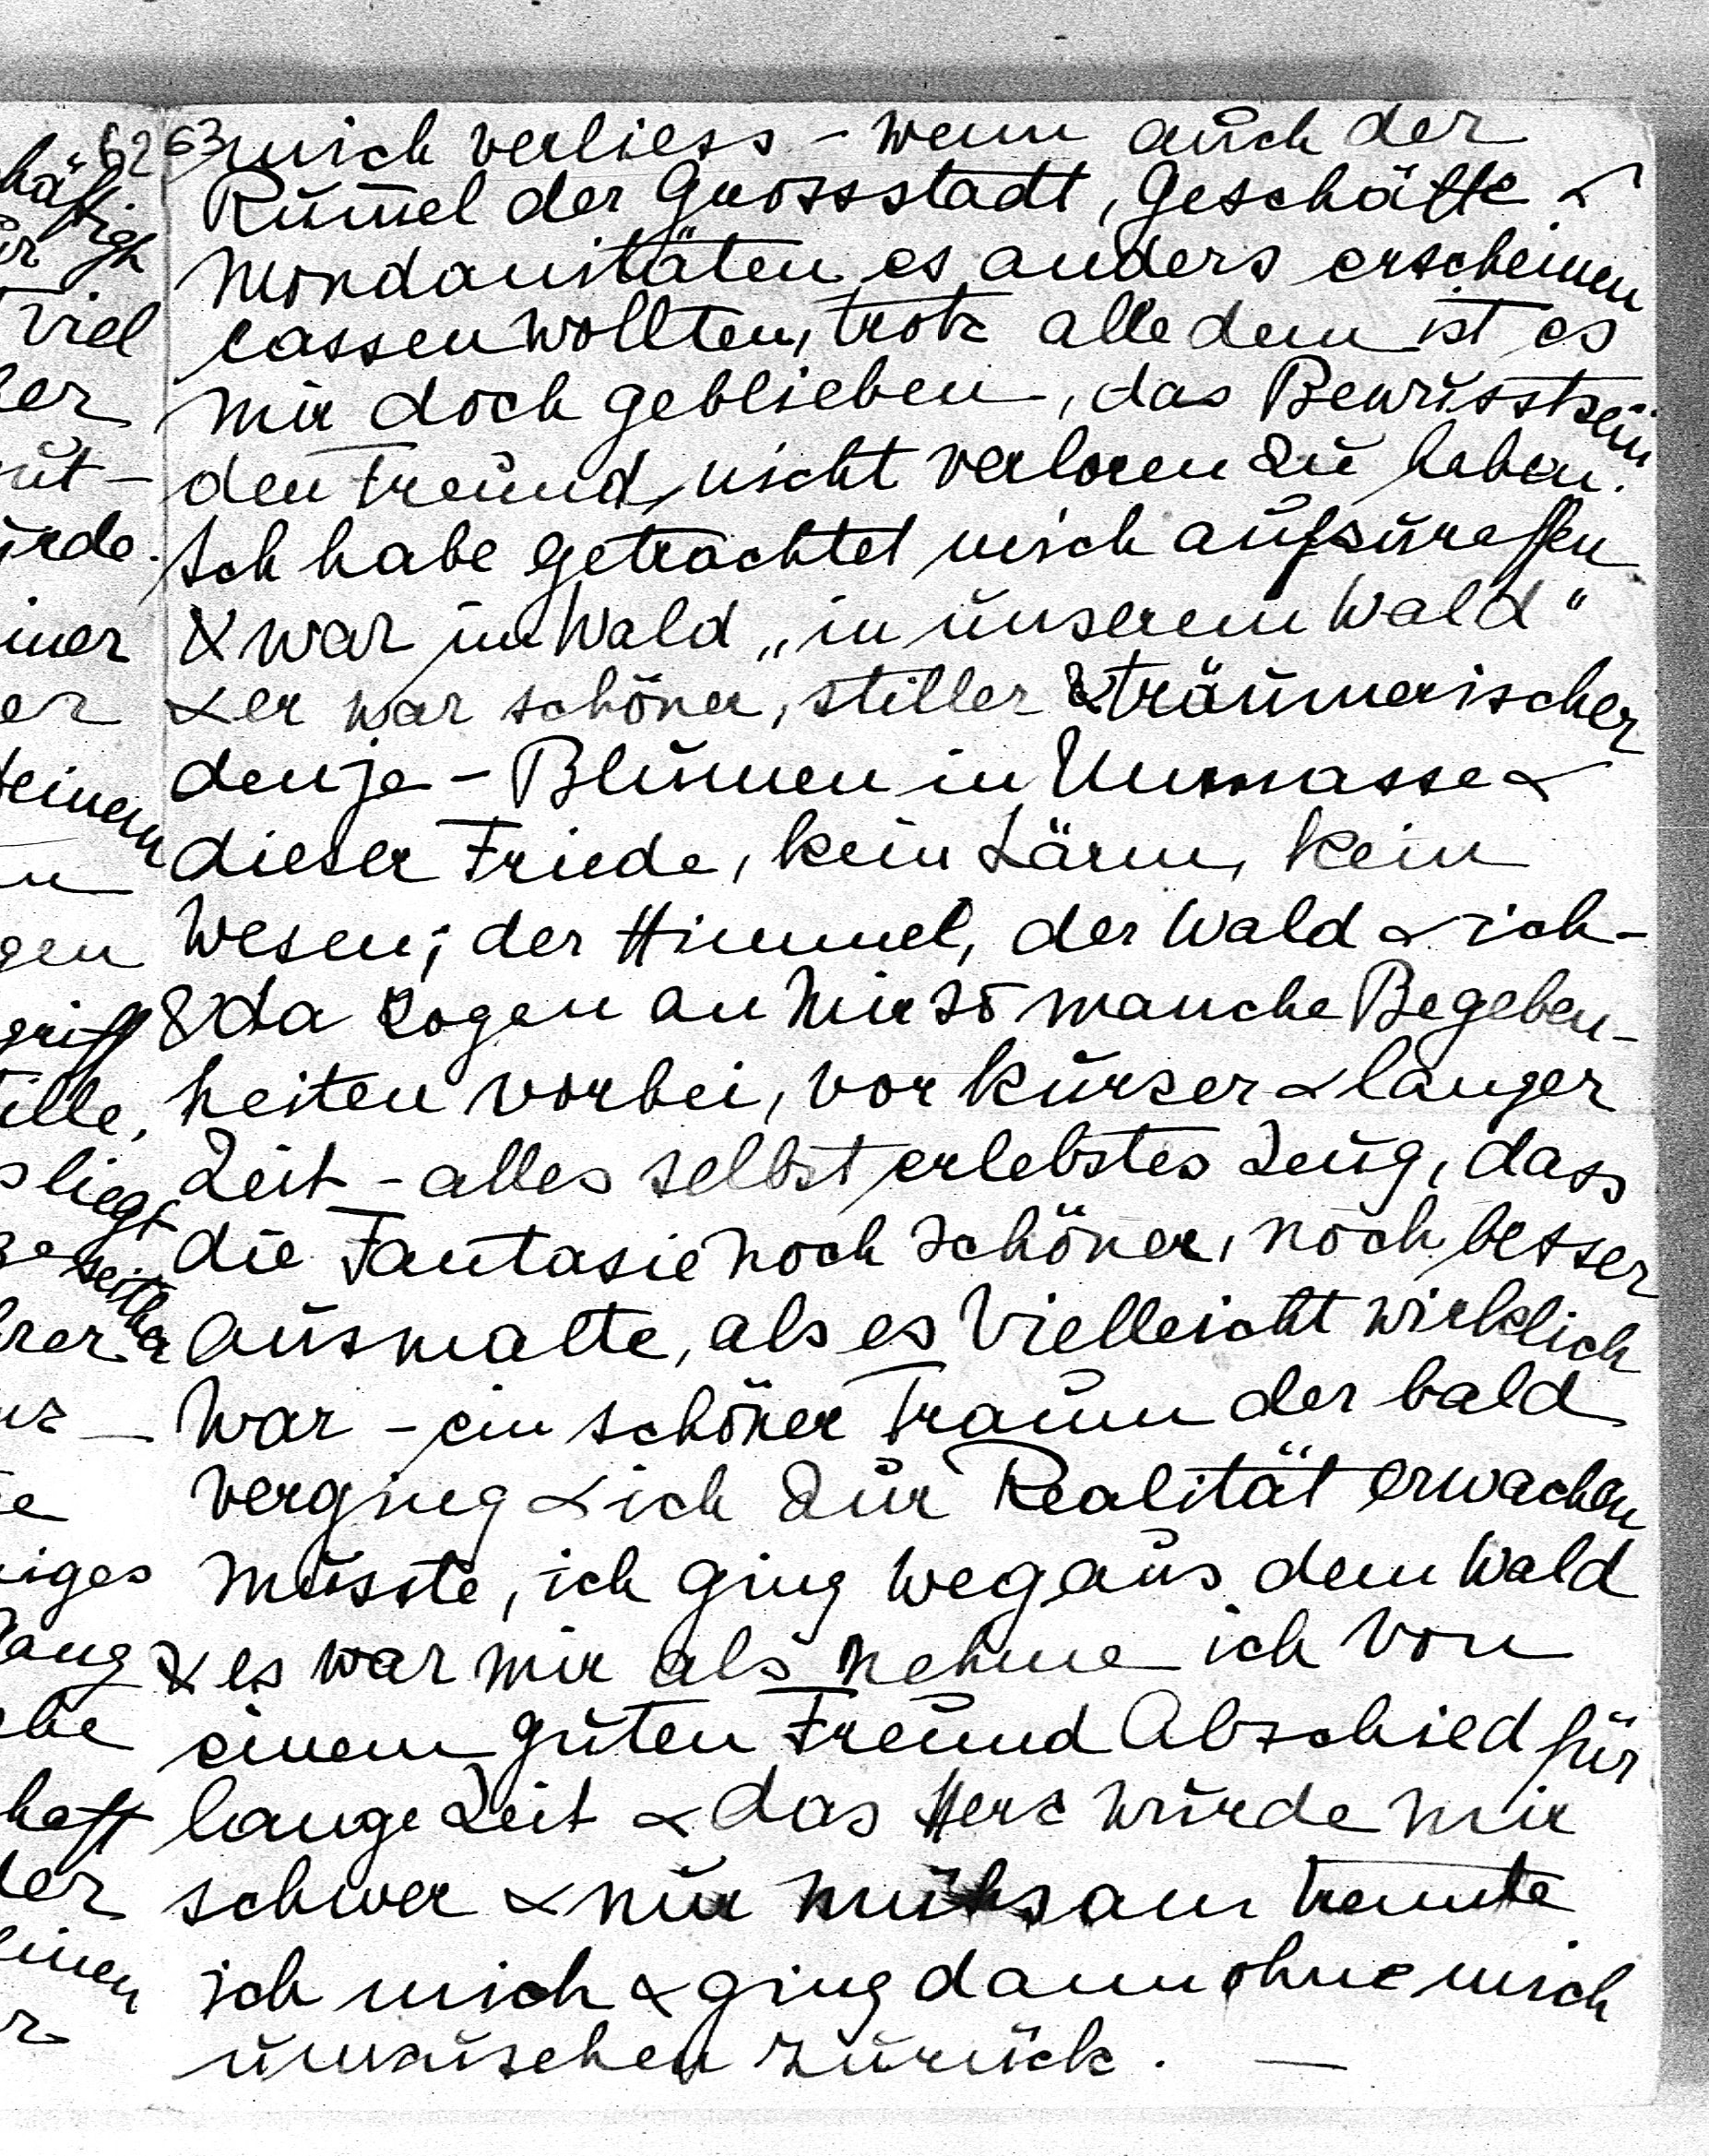 62 63
mich verliess - wenn auch der
Rum̅el der Grossstadt, Geschäfte &
Mondanitäten es anders erscheinen
lassen wollten, trotz alledem ist es
mir doch geblieben, das Bewusstsein
den Freund nicht verloren zu haben.
Ich habe getrachtet mich aufzuraffen
& war im Wald „in unserem Wald"
& er war schöner, stiller & träumerischer
denje - Blumen in Unmasse &
dieser Friede, kein Lärm, kein
Wesen; der Himmel, der Wald & ich -
& da zogen an mir so manche Begeben-
heiten vorbei, vor kurzer & langer
Zeit - alles selbst erlebtes Zeug, dass
die Fantasie noch schöner, noch besser
ausmalte, als es vielleicht wirklich
war - ein schöner Traum der bald
verging & ich zur Realität erwachen
musste, ich ging weg aus dem Wald
& es war mir als nehme ich von
einem guten Freund Abschied für
lange Zeit & das Herz wurde mir
schwer & nur mühsam trennte
ich mich & ging dann ohne mich
umzusehen zurück. —